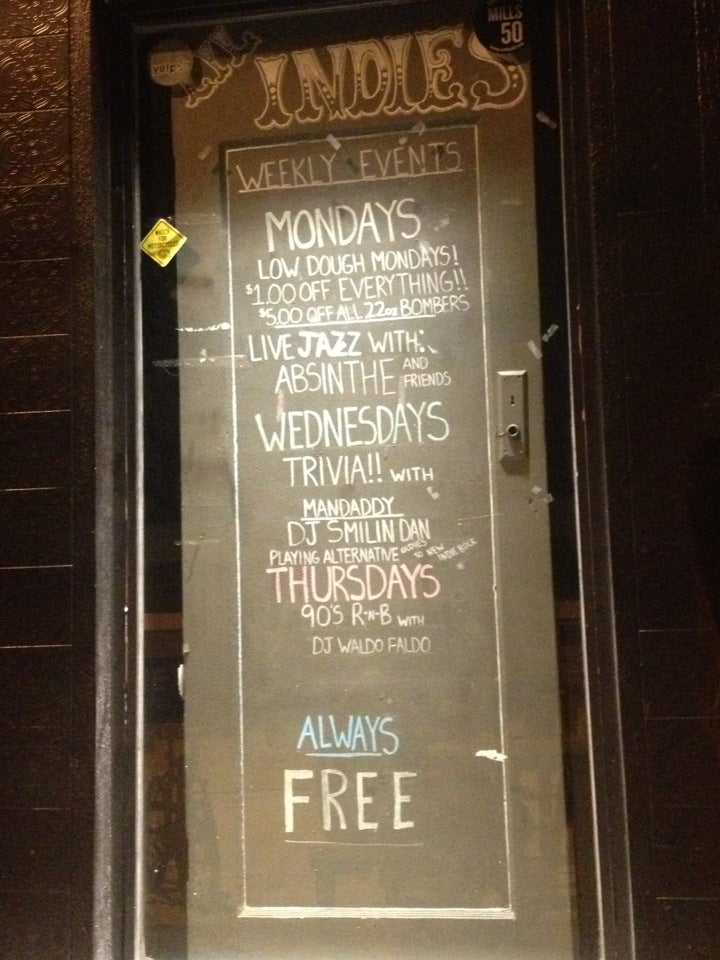 yelp
MILLS
50
LIL INDIES
WATCH
FOR
MOTORCYCLES
WEEKLY EVENTS
MONDAYS
LOW DOUGH MONDAYS!
$1.00 OFF EVERYTHING!!
$5.00 OFF ALL 22oz BOMBERS
LIVE JAZZ WITH:
ABSINTHE AND FRIENDS
WEDNESDAYS
TRIVIA!! WITH
MANDADDY
DJ SMILIN DAN
PLAYING ALTERNATIVE OLDIES TO NEW INDIE ROCK
THURSDAYS
90'S R-N-B WITH
DJ WALDO FALDO
ALWAYS
FREE